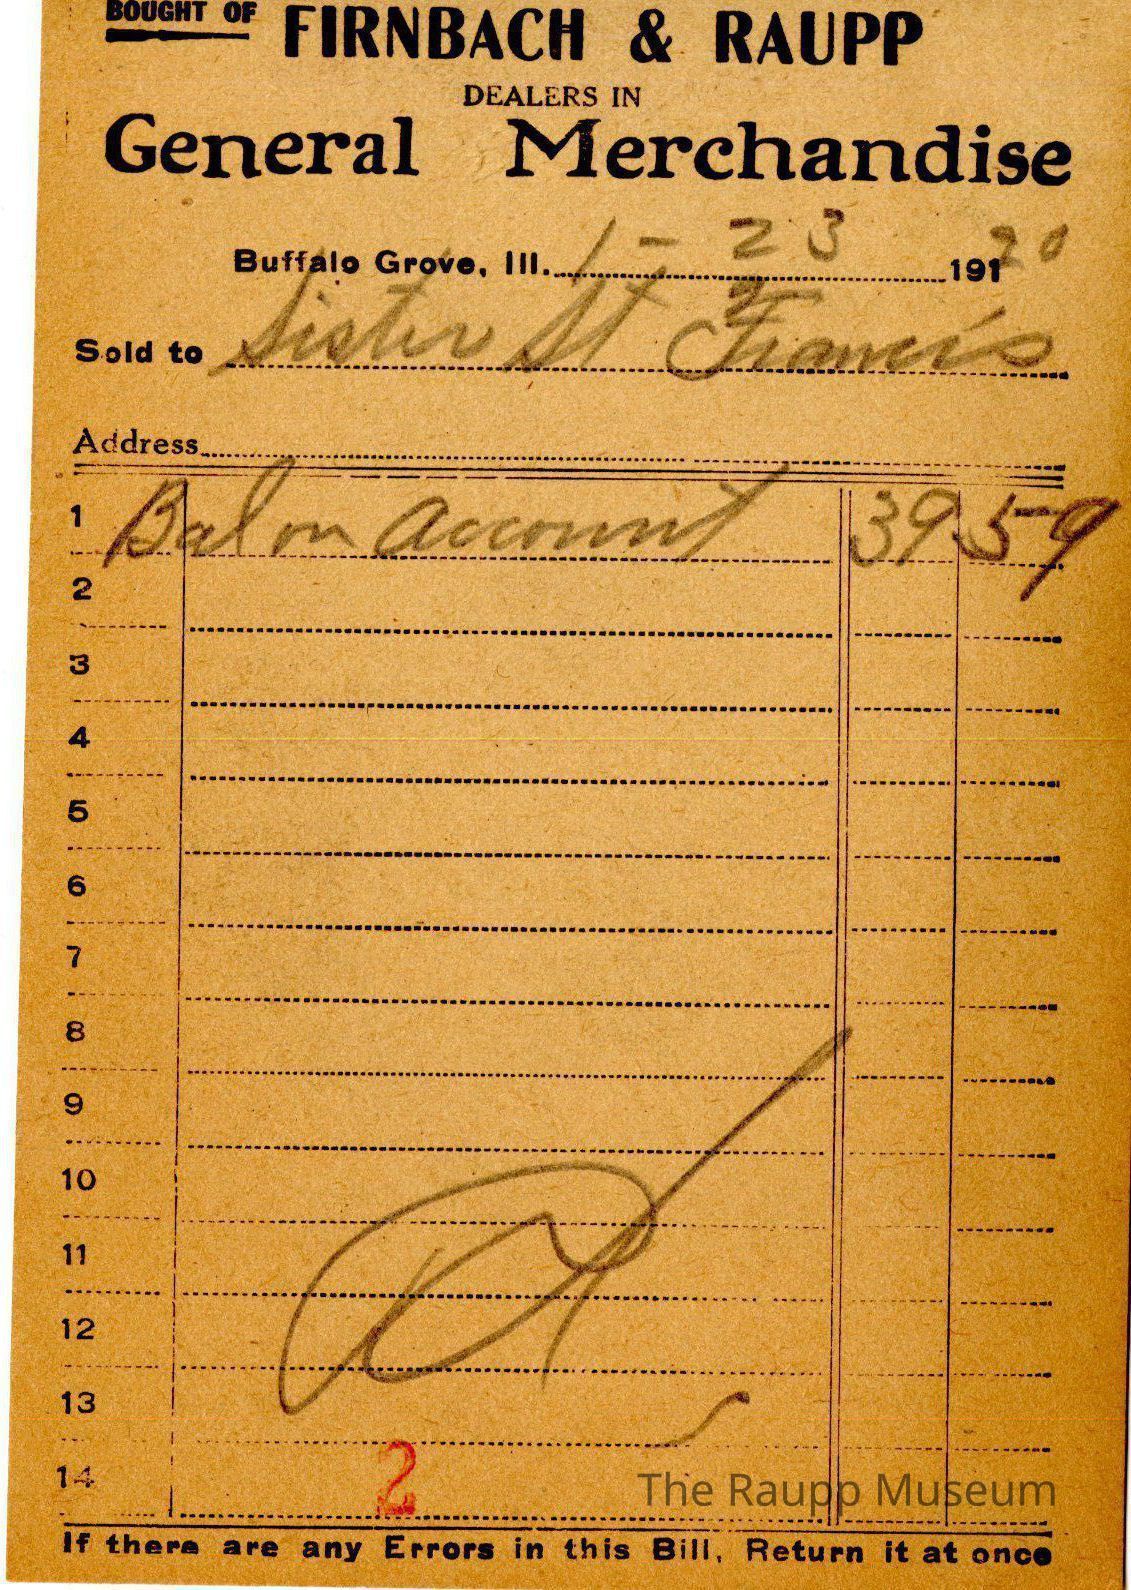 BOUGHT OF FIRNBACH & RAUPP
DEALERS IN
General Merchandise
Buffalo Grove, Ill. 1-23 19120
Sold to Sister St Francis
Address
1 Bal on Account 39 59
2
3
4
5
6
7
8
9
10
11
12
13
14 2
The Raupp Museum
If there are any Errors in this Bill, Return it at once